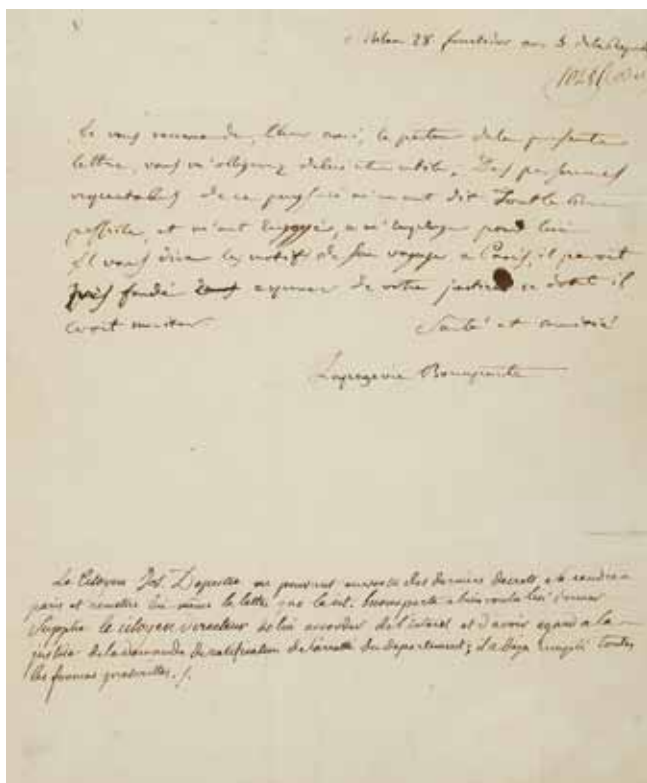 Milan 28 fructidor an 5 de la
Je vous recommande, cher ami, le porteur de la présente
lettre, vous m'obligerez de lui être utile. Des personnes
respectables de ce pays-ci m'ont dit tout le bien
possible, et m'ont engagée, a m'employer pour lui
Il vous dira les motifs de son voyage a Paris, il paroit
fondé de votre justice
Santé et amitié
Lapagerie Bonaparte
Le Citoyen Jos. ne pouvant en vertu des derniers decrets, se rendre a
paris et remettre lui même la lettre que la cit. buonaparte a bien voulu lui donner
supplie le citoyen directeur de lui accorder de l'interet et d'avoir egard a la
justice de la demande de ratification de l'arreté du departement; il a deja rempli toutes
les formes prescrites ./.